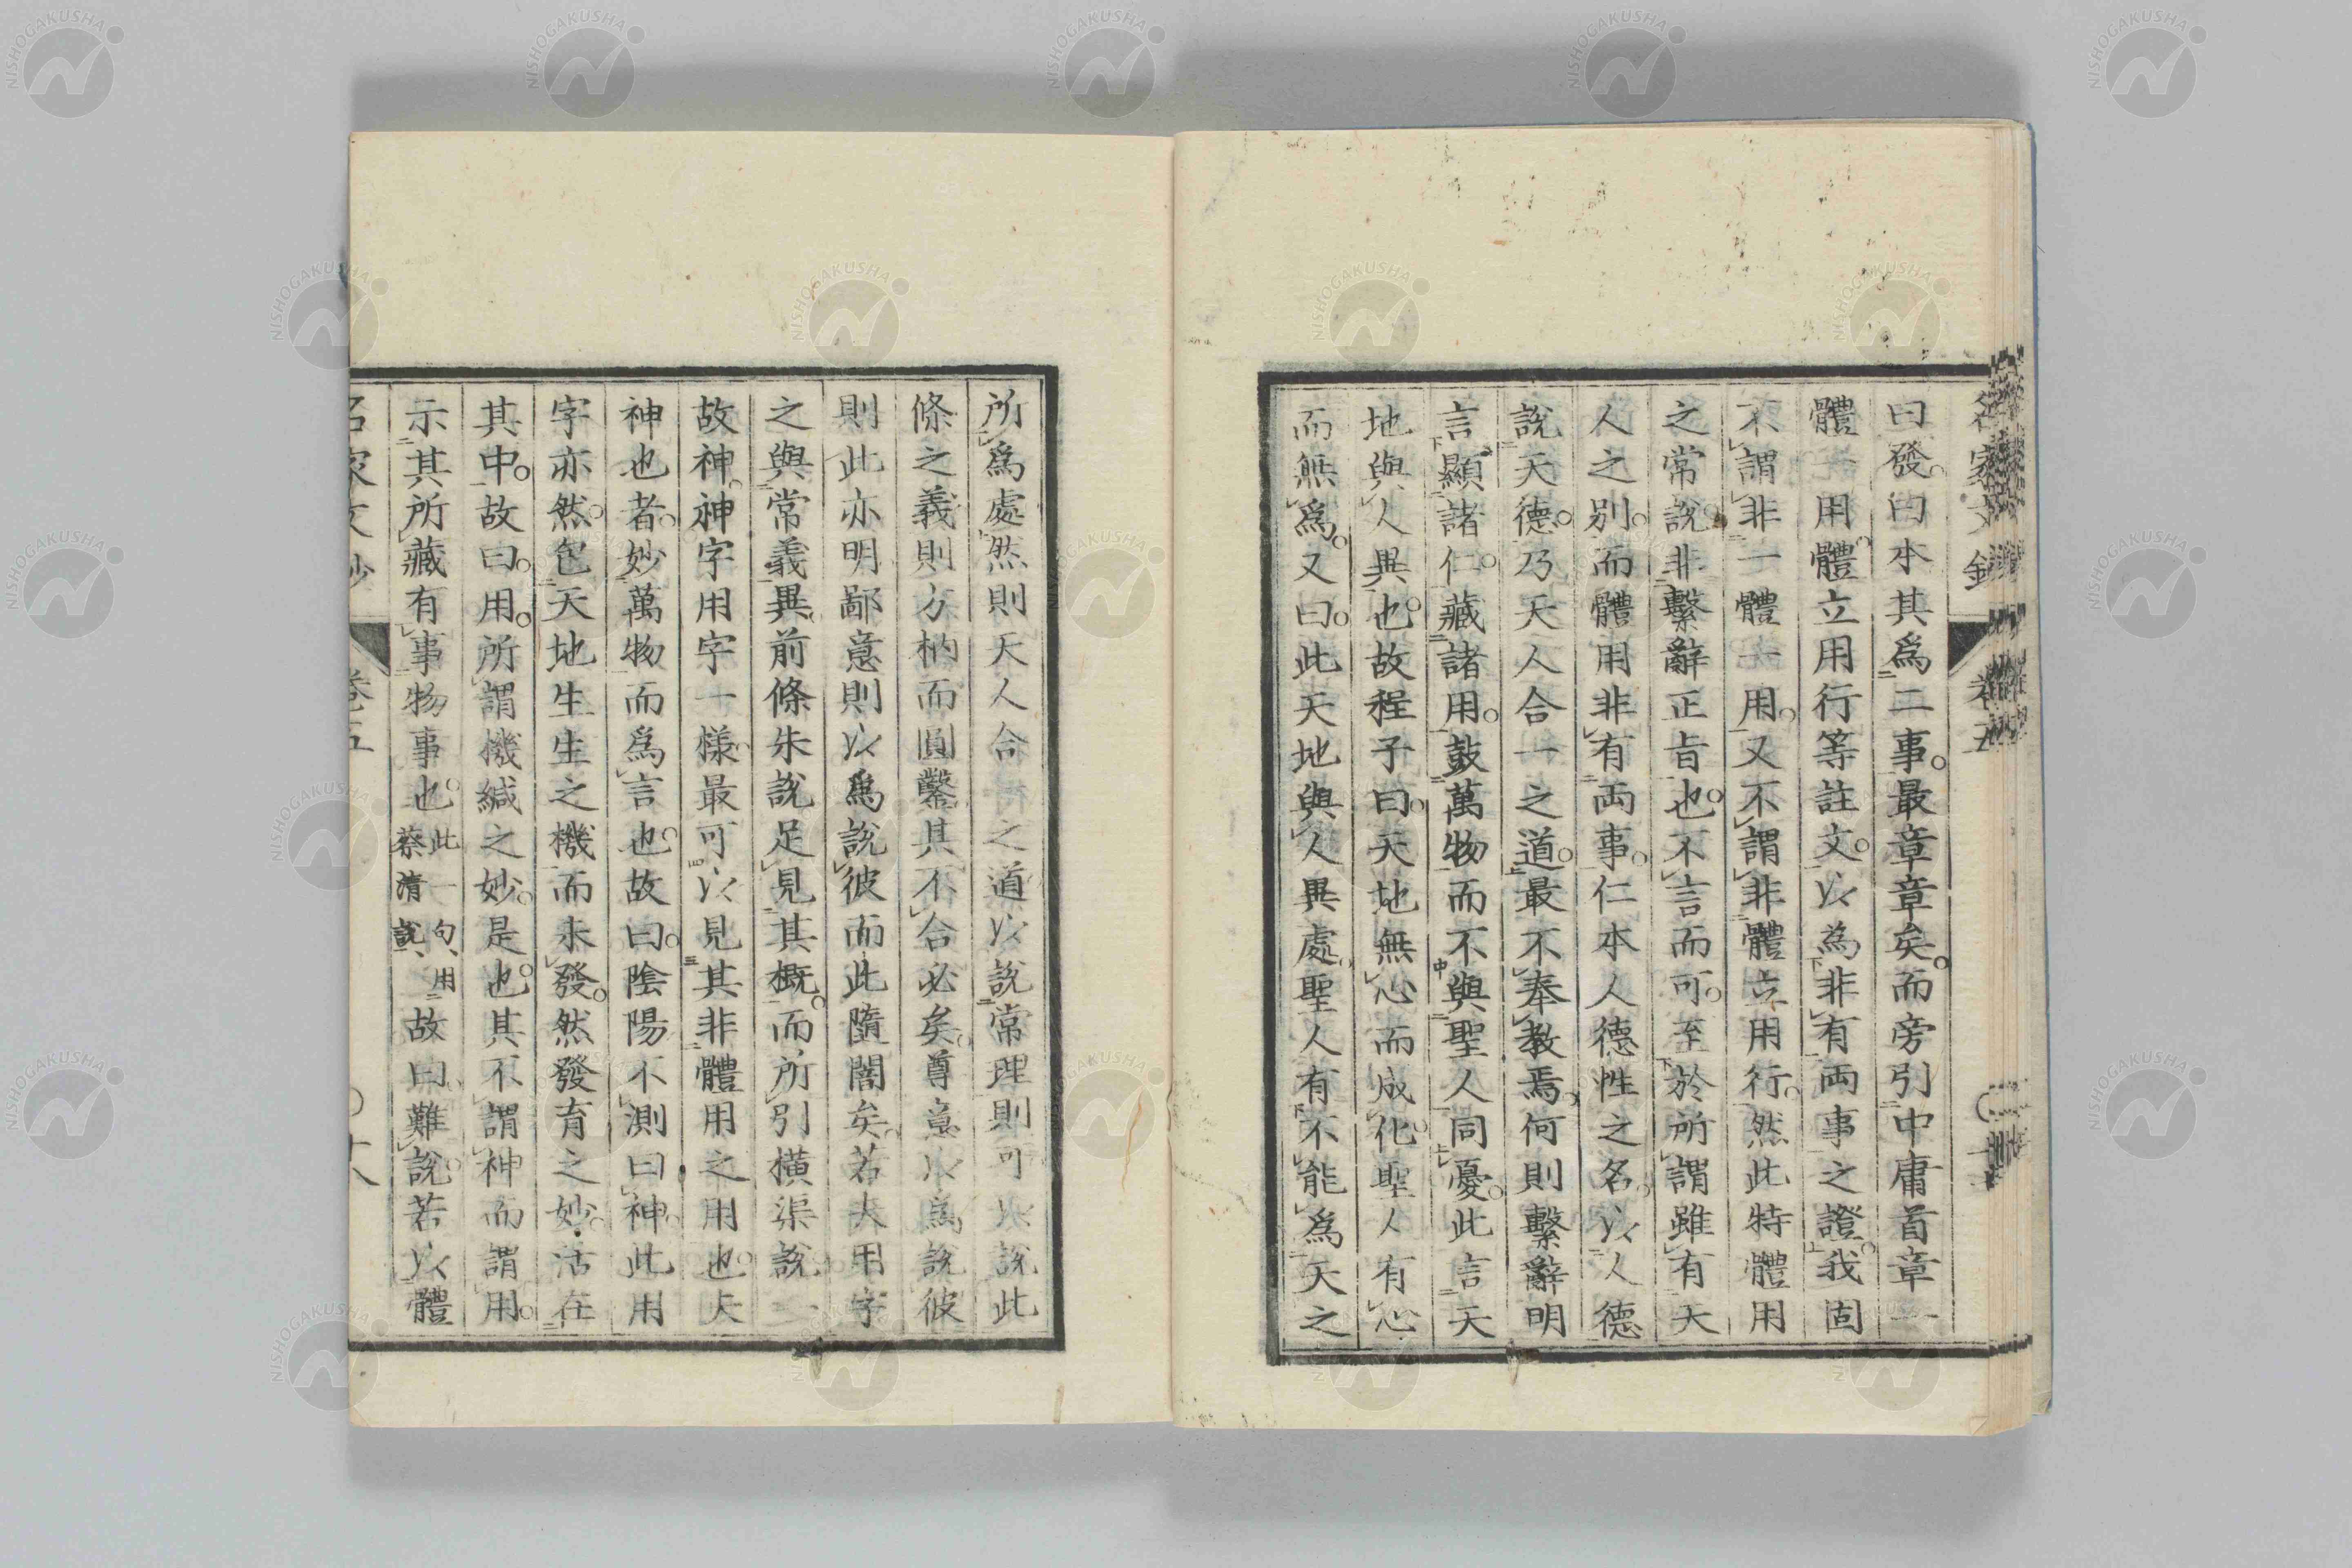 曰發曰本其爲二事最章章矣而旁引中庸首章一
體一用體立用行等註文以爲非有両事之證我固
不謂非一體一用又不謂非體立用行然此特體用
之常說非繫辭正旨也不言而可至於所謂雖有天
人之別而體用非有両事仁本人德性之名以人德
說天德乃天人合一之道最不奉教焉何則繫辭明
言顯諸仁藏諸用鼓萬物而不與聖人同憂此言天
地與人異也故程子曰天地無心而成化聖人有心
而無爲又曰此天地與人異處聖人有不能爲天之
所爲處然則天人合之道以說常理則可以說此
條之義則方枘而圓鑿其不合必矣尊意以爲說彼
則此亦明鄙意則以爲說彼而此隨闇矣若夫用字
之與常義異前條朱說足見其概而所引橫渠說
故神神字用字一樣最可以見其非體用之用也夫
神也者妙萬物而爲言也故曰陰陽不測曰神此用
字亦然包天地生生之機而未發然發育之妙活在
其中故曰用所謂機緘之妙是也其不謂神而謂用
示其所藏有事物事也此一句用蔡淸說故曰難說若以體
名家文鈔
卷五
名家文鈔
卷五
十八
NISHOGAKUSHA